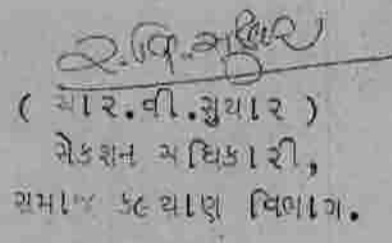 ર.વિ.સુથાર
( આર.વી.સુથાર )
સેકશન અધિકારી,
સમાજ કલ્યાણ વિભાગ.